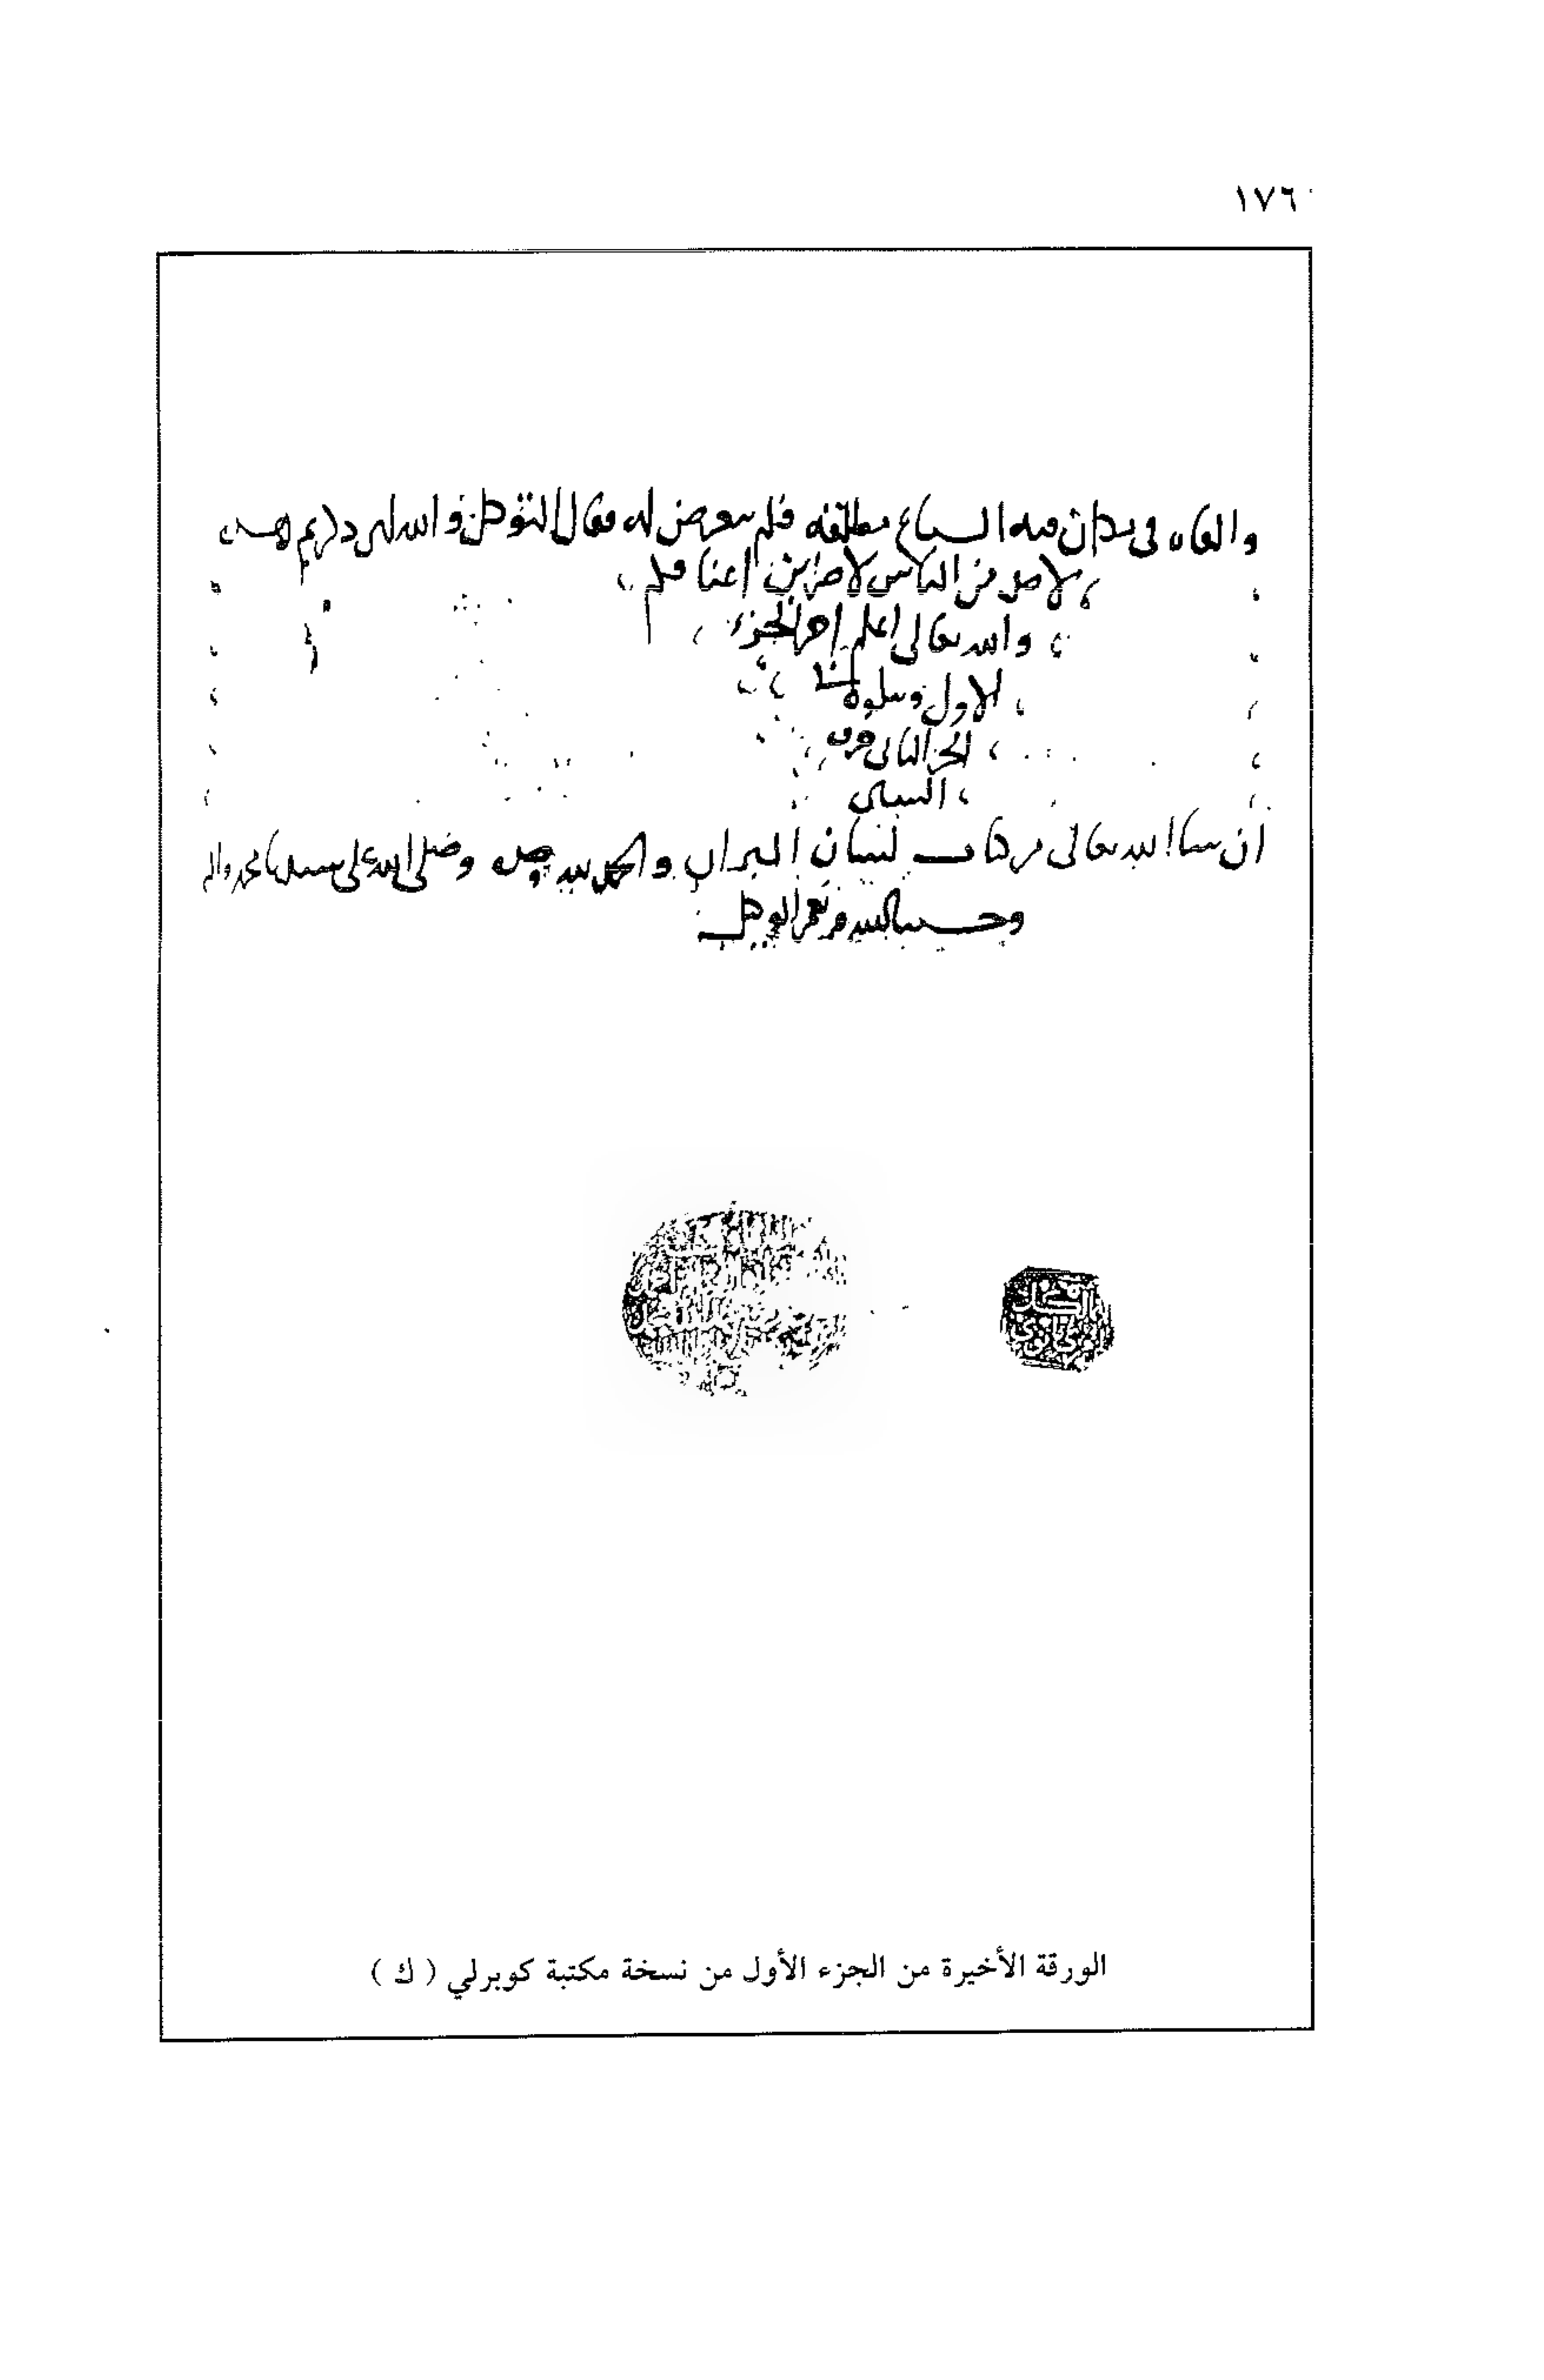 ١٧٦
والقاه في ميدان فيه السباع مطلقه فلم يتعرض له فقال المتوكل والله لين ذكرتم هذا
لاحد من الناس لاضربن اعناقكم
والله تعالى اعلم اخر الجزء
الاول ويتلوه
الجزء الثاني من
ان شا الله تعالى من كتاب لسان الميزان والحمد لله وحده وصلى الله على سيدنا محمد واله
وحسبنا الله ونعم الوكيل
الورقة الأخيرة من الجزء الأول من نسخة مكتبة كوبرلي ( ك )